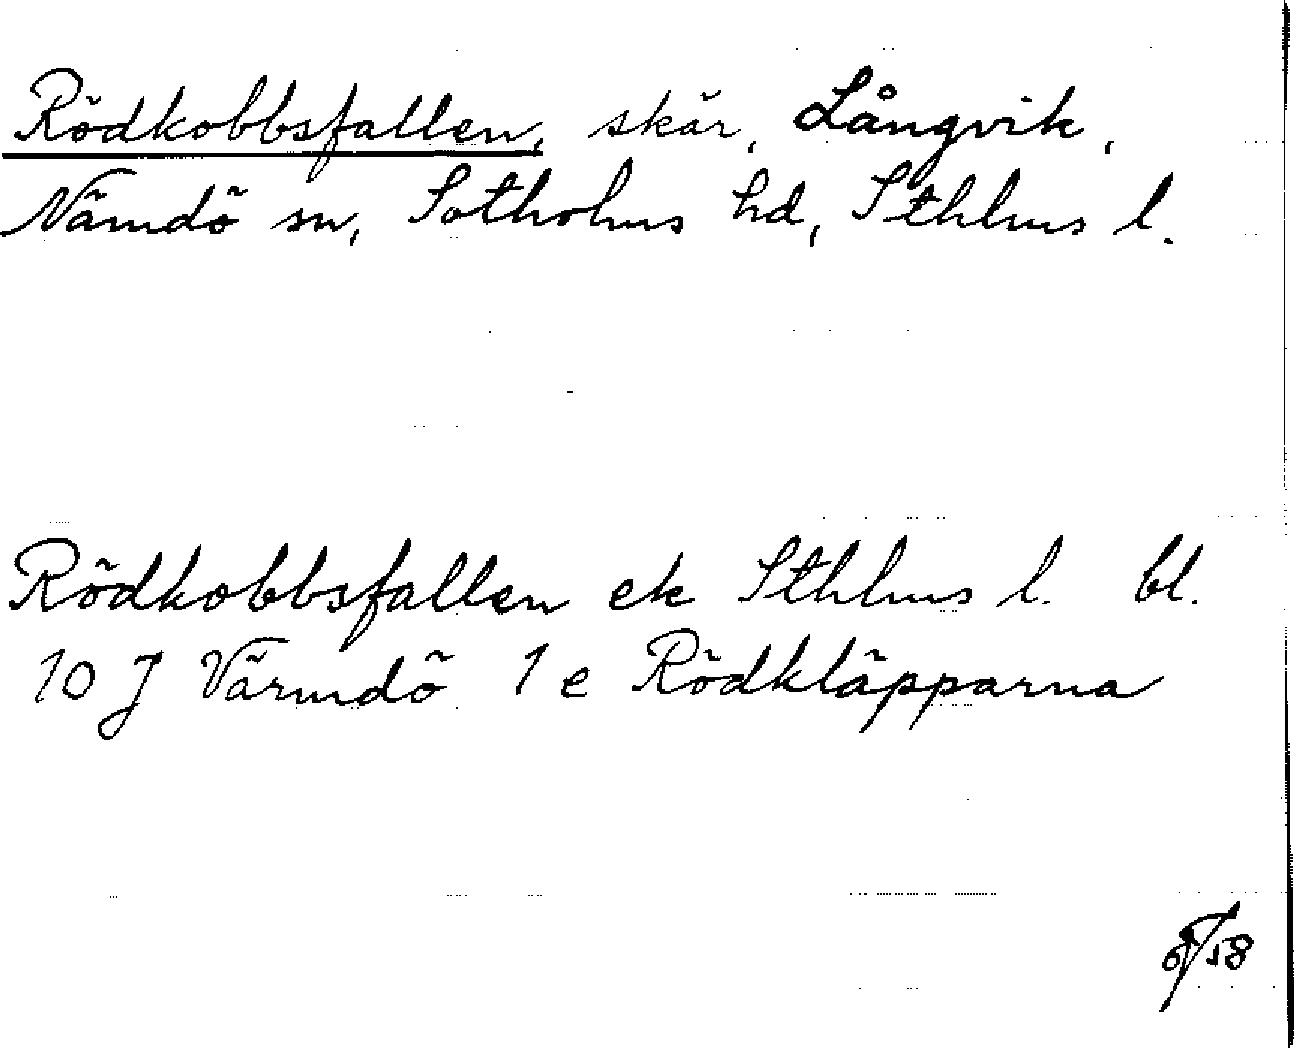 Rödkobbsfallen, skär, Långvik,
Nämdö sn, Sotholms hd, Sthlms l.
Rödkobbsfallen ek Sthlms l. bl.
10 J Värmdö 1 e Rödkläpparna